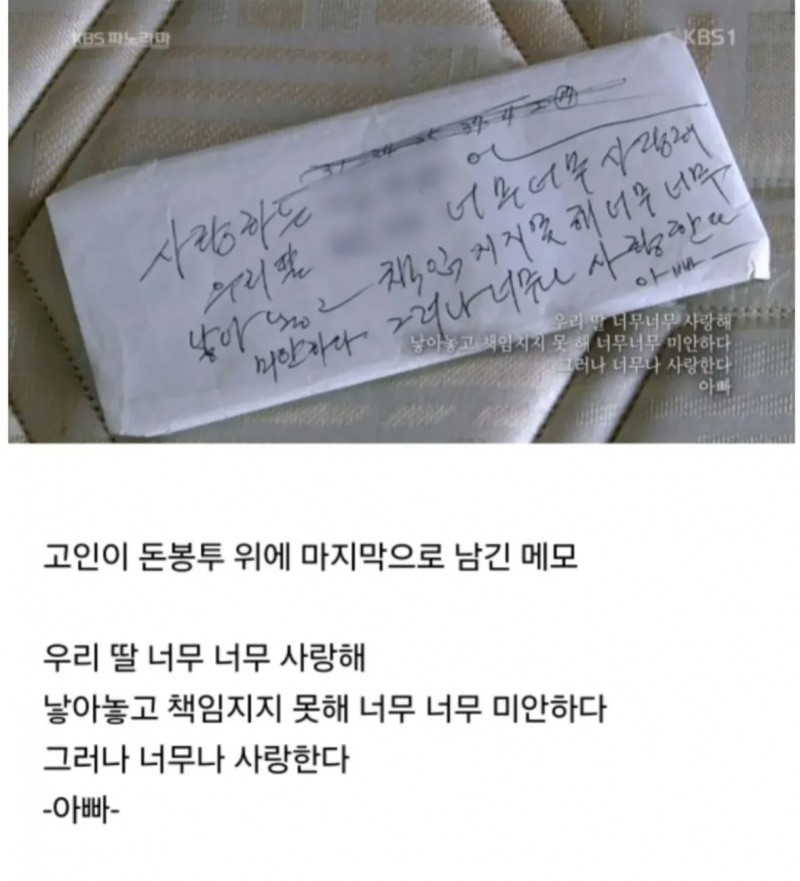 KBS 파노라마
KBS1
31 34 25 37 4 2 19
사랑하는
어
너무너무 사랑해
우리 딸
책임 지지 못 해 너무 너무
낳아 놓고
미안하다 그러나 너무나 사랑한다
아빠
우리 딸 너무너무 사랑해
낳아놓고 책임지지 못 해 너무너무 미안하다
그러나 너무나 사랑한다
아빠
고인이 돈봉투 위에 마지막으로 남긴 메모
우리 딸 너무 너무 사랑해
낳아놓고 책임지지 못해 너무 너무 미안하다
그러나 너무나 사랑한다
-아빠-